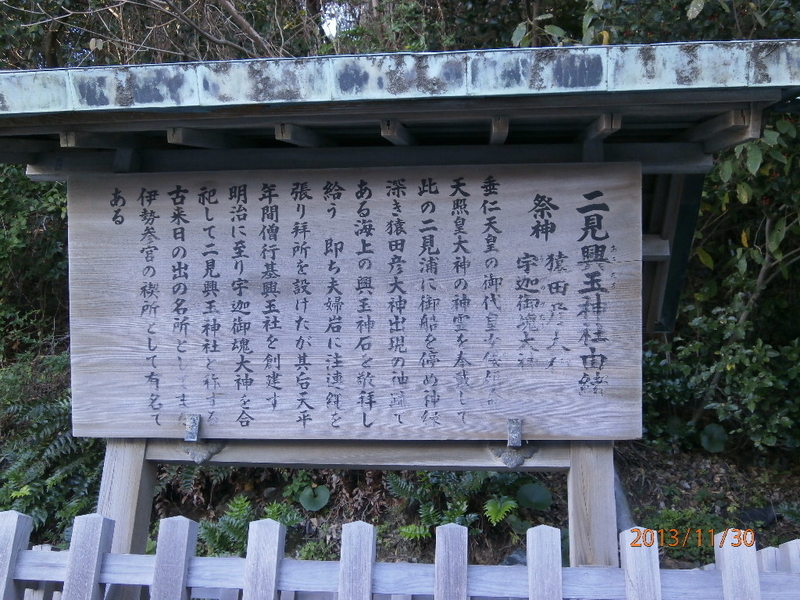 二見興玉神社由緒
祭神 猿田彦大神
宇迦御魂大神
垂仁天皇の御代皇女倭姫命
天照皇大神の神霊を奉戴して
此の二見浦に御船を停め神縁
深き猿田彦大神出現の神蹟で
ある海上の興玉神石を敬拝し
給う 即ち夫婦岩に注連縄を
張り拝所を設けたが其后天平
年間僧行基興玉社を創建す
明治に至り宇迦御魂大神を合
祀して二見興玉神社と称する
古来日の出の名所として
伊勢参宮の禊所として有名で
ある
2013/11/30